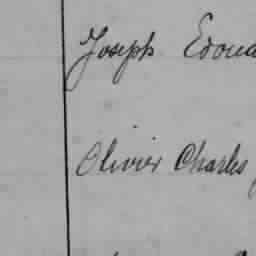 Joseph Edoua
Olivier Charles